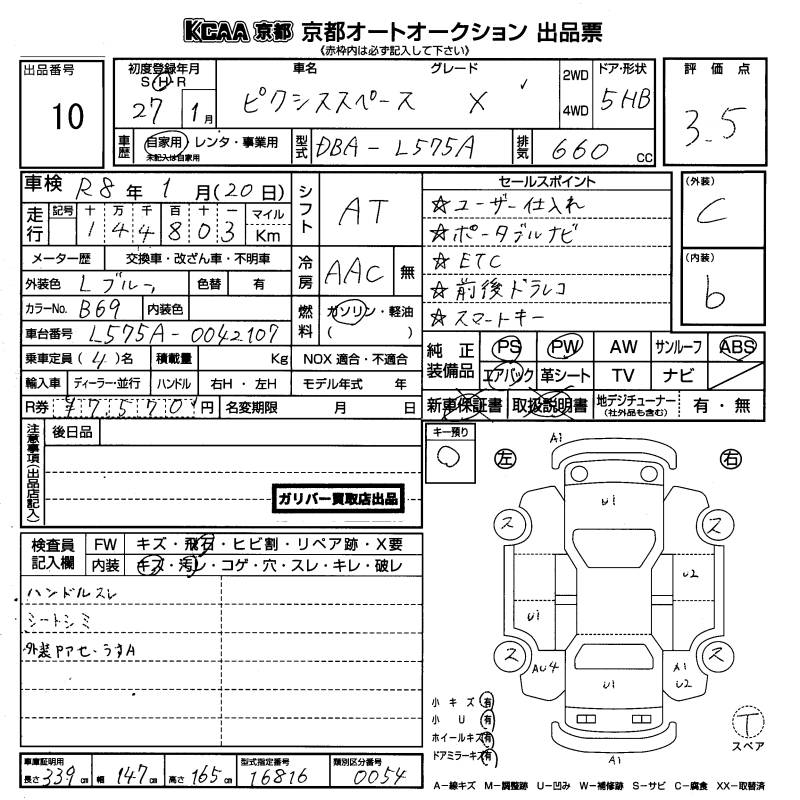 KCAA 京都 京都オートオークション 出品票
《赤枠内は必ず記入して下さい》
出品番号
10
初度登録年月
S・H・R
27 1月
車名 グレード
ピクシススペース X
2WD
4WD
ドア・形状
5HB
評価点
3.5
車歴 自家用・レンタ・事業用
未記入は自家用
型式 DBA-L575A
排気 660 cc
車検 R8年1月(20日)
走行 記号 十 万 千 百 十 一 マイル
1 4 4 8 0 3 Km
メーター歴 交換車・改ざん車・不明車
外装色 Lブルー 色替 有
カラーNo. B69 内装色
車台番号 L575A-0042107
乗車定員(4)名 積載量 Kg
輸入車 ディーラー・並行 ハンドル 右H・左H
R券 ¥7570 円 名変期限 月 日
シフト AT
冷房 AAC 無
燃料 ガソリン・軽油
( )
NOX 適合・不適合
モデル年式 年
セールスポイント
☆ユーザー仕入れ
☆ポータブルナビ
☆ETC
☆前後ドラレコ
☆スマートキー
(外装)
C
(内装)
b
純正装備品 PS PW AW サンルーフ ABS
エアバック 革シート TV ナビ
新車保証書 取扱説明書 地デジチューナー(社外品も含む) 有・無
注意事項(出品店記入)
後日品
ガリバー買取店出品
キー預り
○
検査員記入欄 FW キズ・飛石・ヒビ割・リペア跡・X要
内装 キズ・汚レ・コゲ・穴・スレ・キレ・破レ
ハンドルスレ
シートシミ
外装PPセ・うすA
左 右
A1
U1
ス ス
U2
U1
ス ス
AU4 U1 A1
U2
A1
小キズ 有
小U 有
ホイールキズ 有
ドアミラーキズ 有
T
スペア
車庫証明用
長さ 339cm 幅 147cm 高さ 165cm
型式指定番号
16816
類別区分番号
0054
A－線キズ M－調整跡 U－凹み W－補修跡 S－サビ C－腐食 XX－取替済